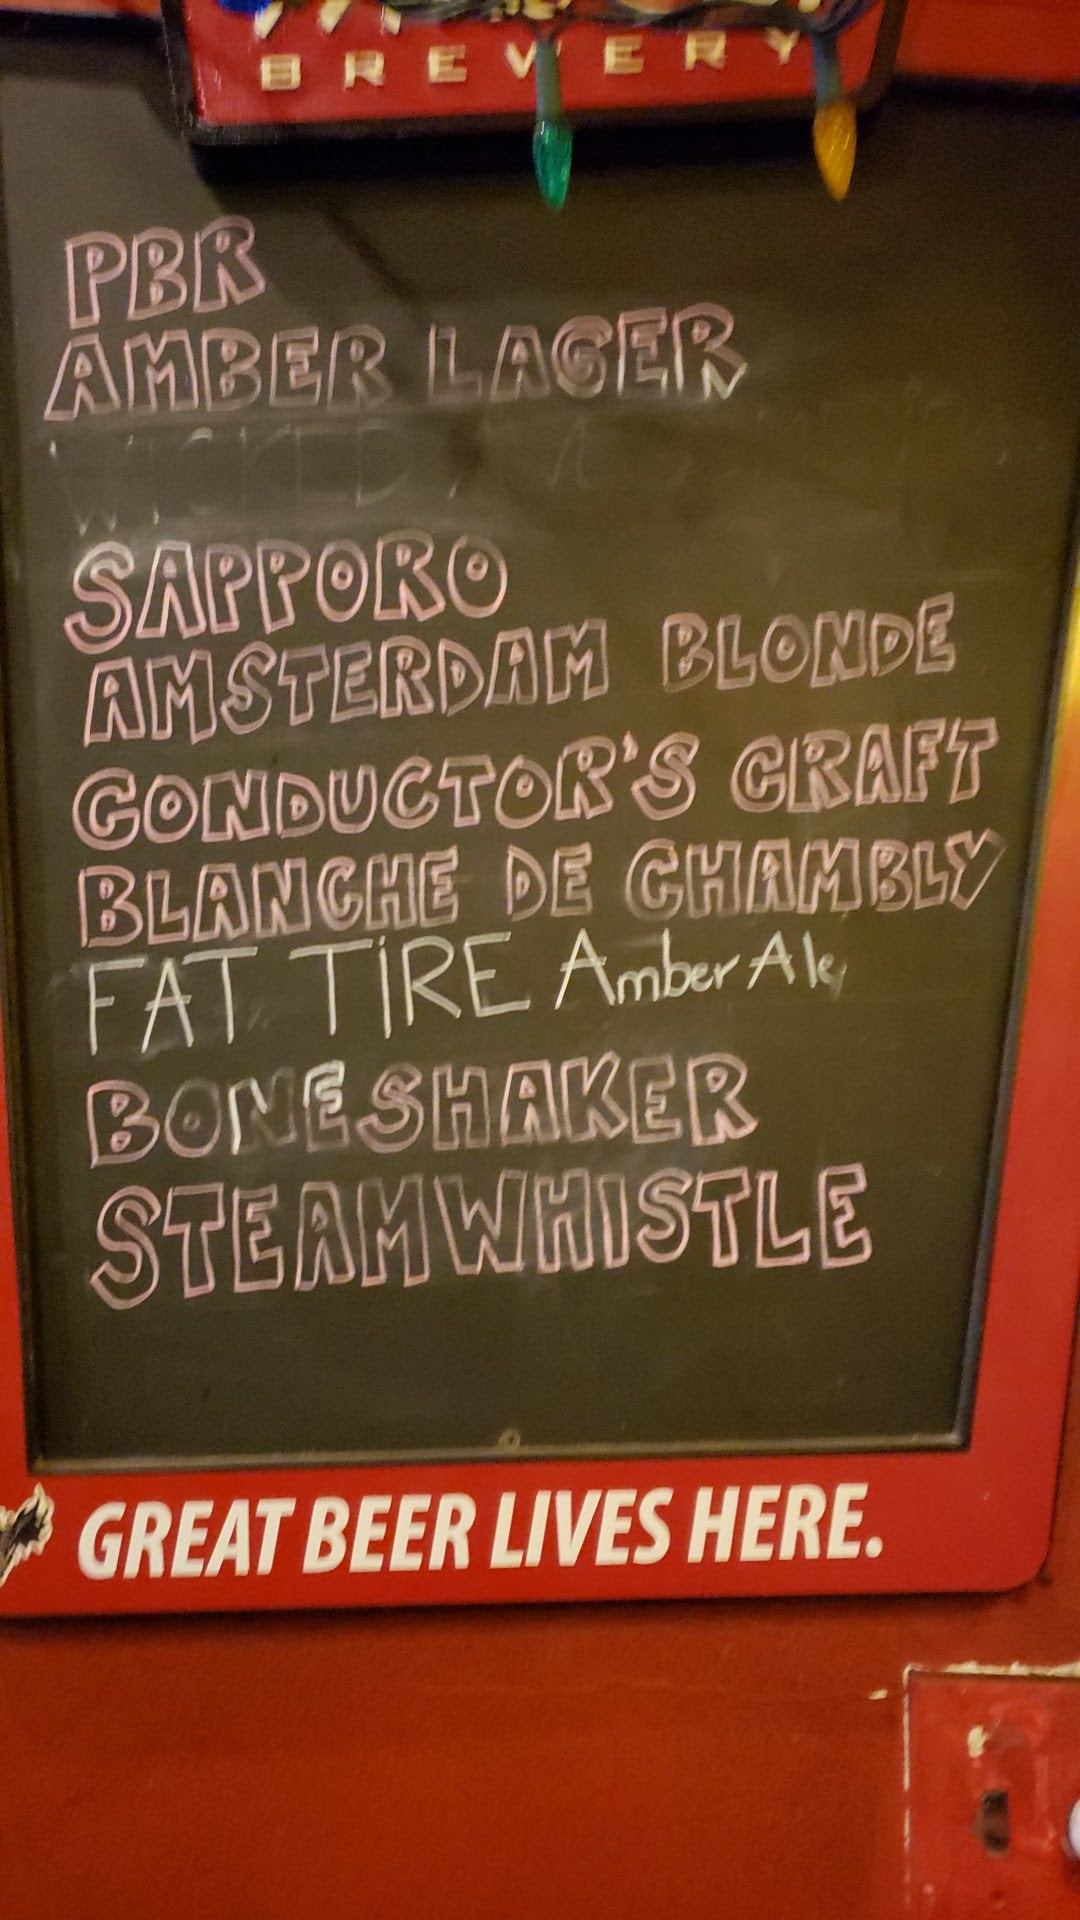 BREWERY
PBR
AMBER LAGER
WICKED
SAPPORO
AMSTERDAM BLONDE
CONDUCTOR'S CRAFT
BLANCHE DE CHAMBLY
FAT TiRE Amber Ale
BONESHAKER
STEAMWHISTLE
GREAT BEER LIVES HERE.